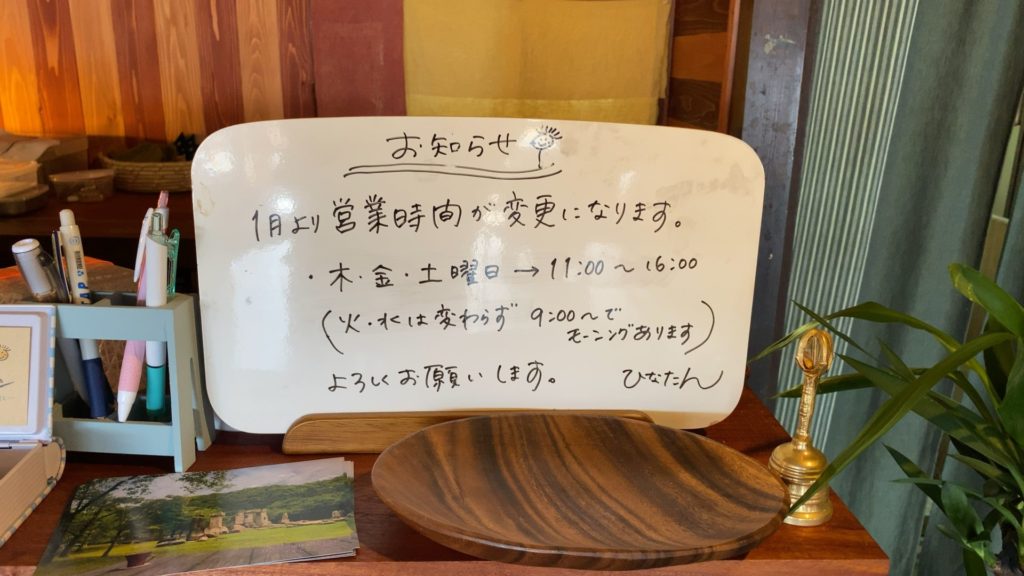 お知らせ
1月より営業時間が変更になります。
・木・金・土曜日→11:00～16:00
(火・水は変わらず 9:00～で
モーニングあります)
よろしくお願いします。 ひなたん